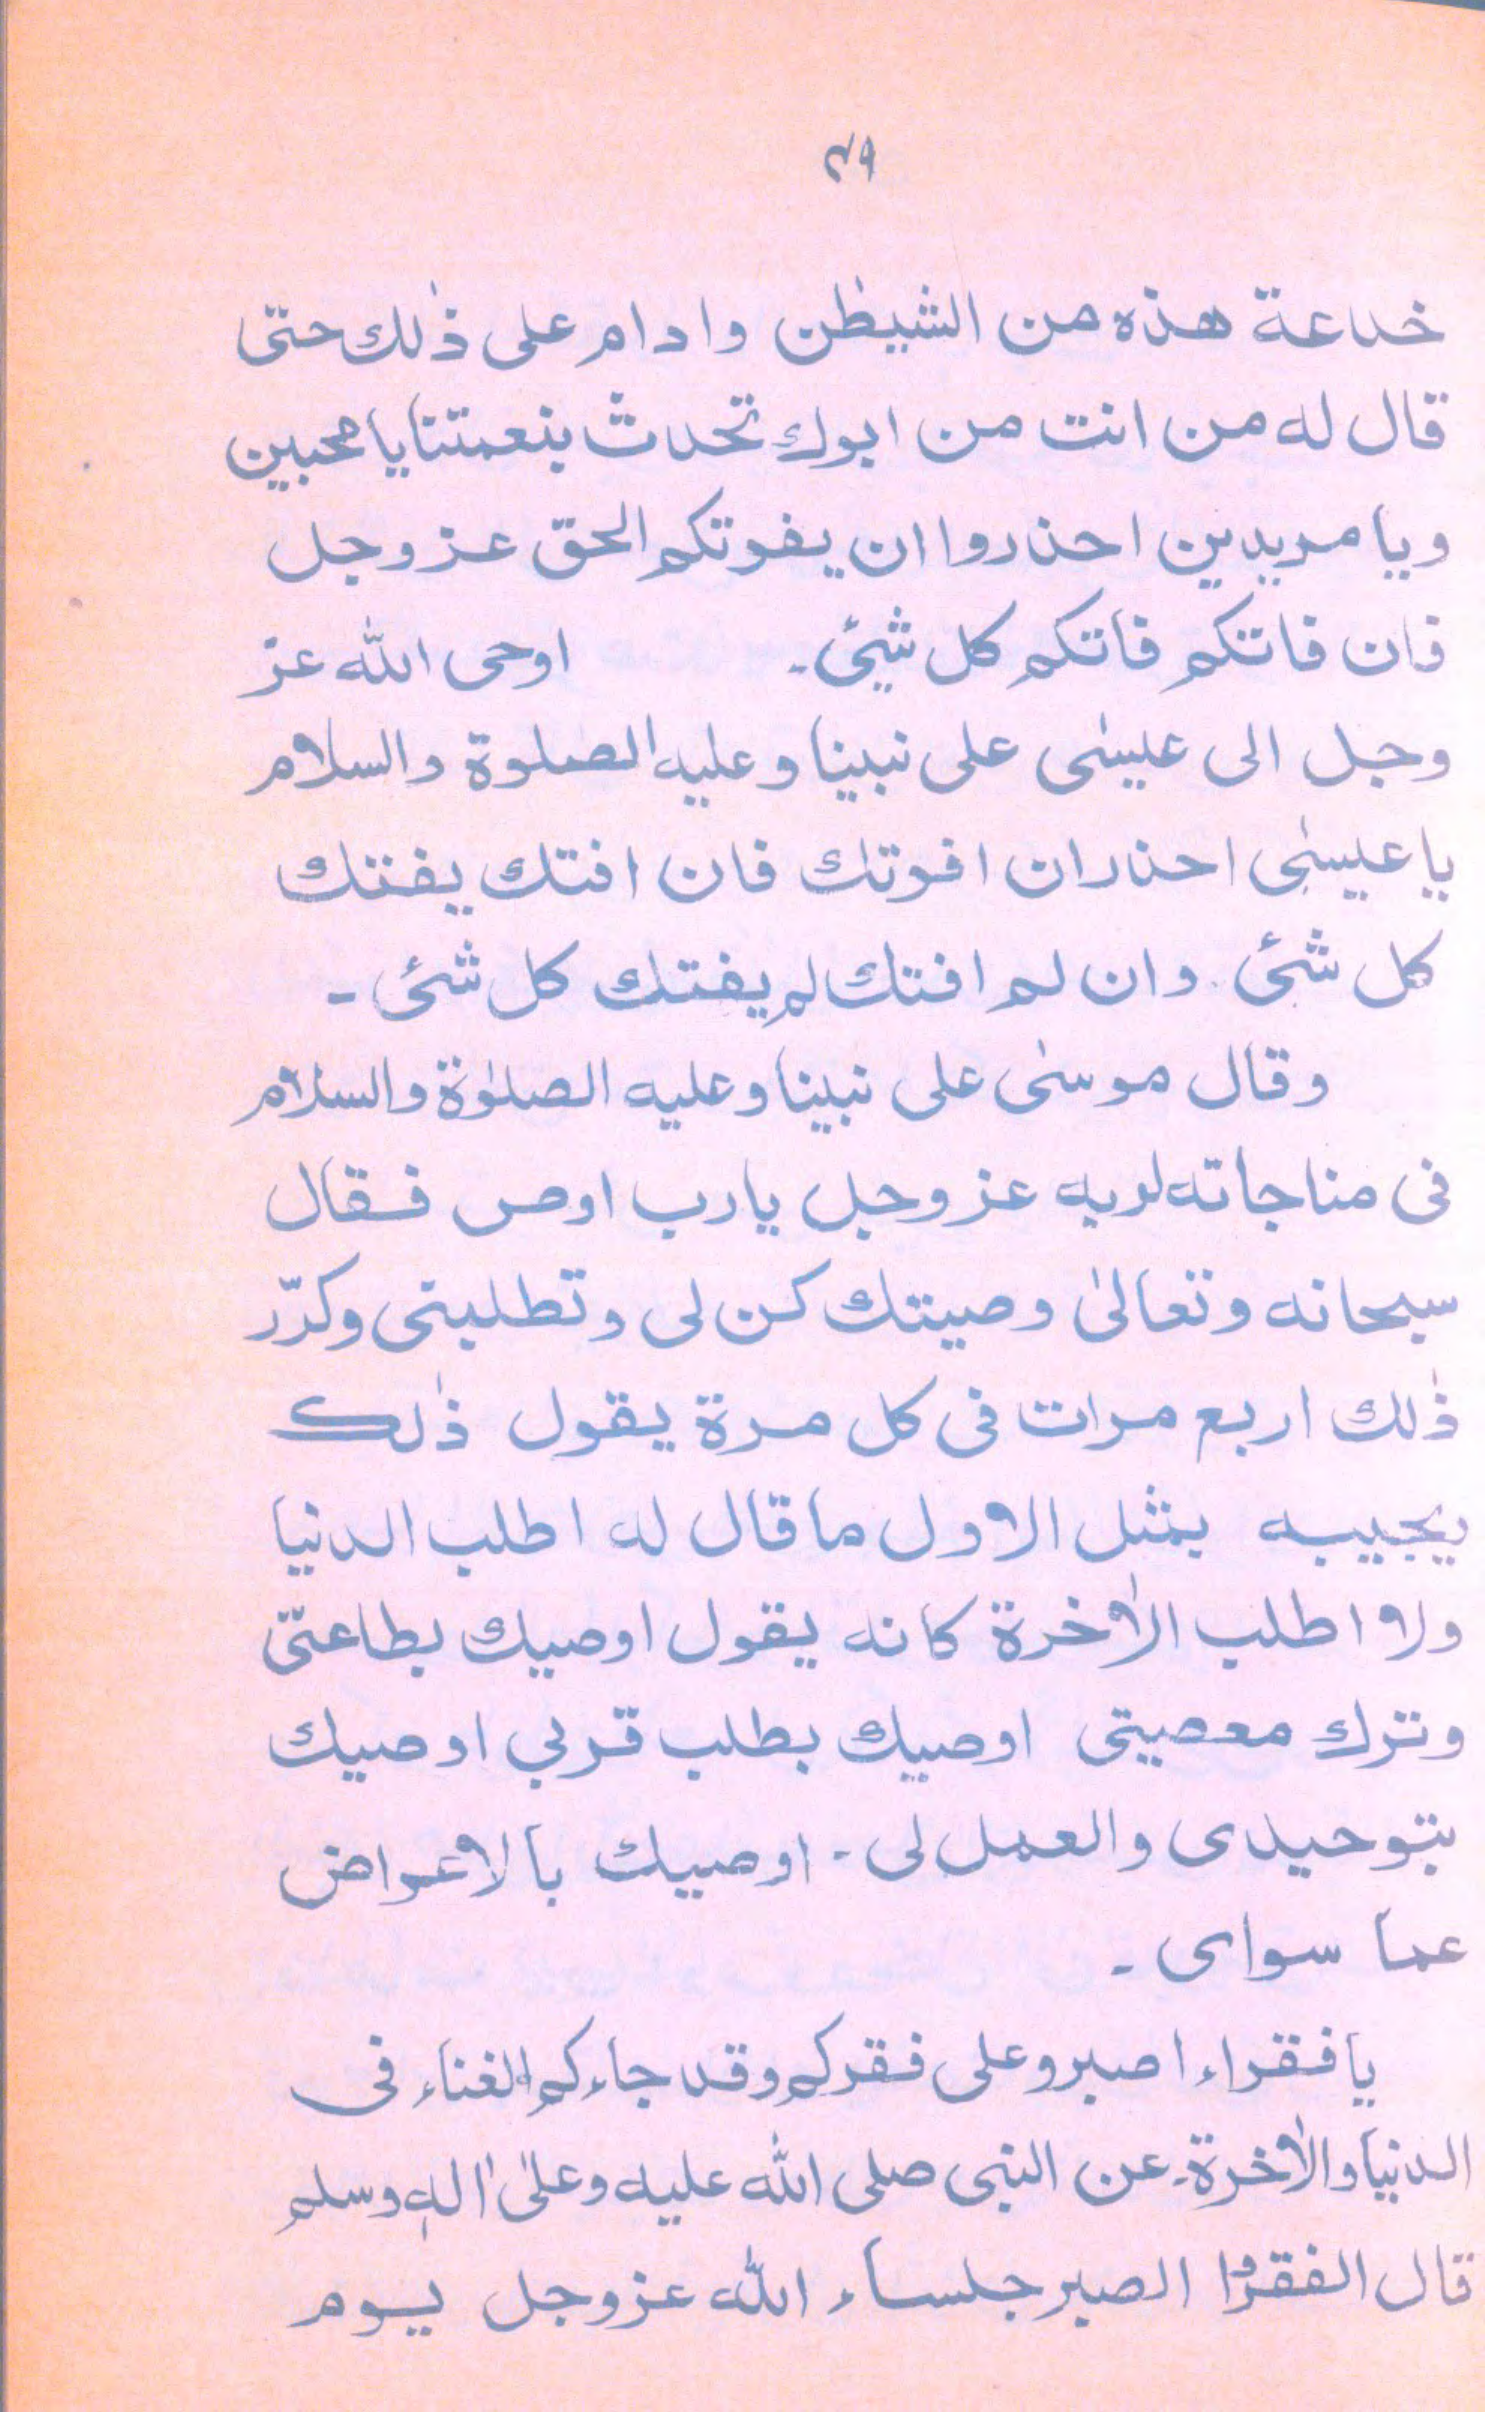 ٤٩
خداعة هذه من الشيطٰن وادام على ذٰلك حتى
قال له من انت من ابوك تحدث بنعمتنا يا محبين
ويا مريدين احذروا ان يفوتكم الحق عز وجل
فان فاتكم فاتكم كل شيئ۔ اوحى الله عز
وجل الى عيسٰى على نبينا وعليه الصلوة والسلام
يا عيسٰى احذران افوتك فان افتك يفتك
كل شئ وان لم افتك لم يفتك كل شئ۔
وقال موسٰى على نبينا وعليه الصلوٰة والسلام
فى مناجاته لربه عز وجل يارب اوص فقال
سبحانه وتعالىٰ وصيتك كن لى وتطلبنى وكرّر
ذٰلك اربع مرات فى كل مرة يقول ذٰلك
يجيبه بمثل الاول ما قال له اطلب الدنيا
ولا اطلب الاٰخرة كانه يقول اوصيك بطاعتى
وترك معصيتى اوصيك بطلب قربي اوصيك
بتوحيدى والعمل لى۔ اوصيك بالاعراض
عما سواى۔
يا فقراء اصبرو على فقركم وقد جاءكم الغناء فى
الدنيا والاٰخرة۔ عن النبى صلى الله عليه وعلىٰ اٰله وسلم
قال الفقرٰؤا الصبر جلساء الله عز وجل يوم